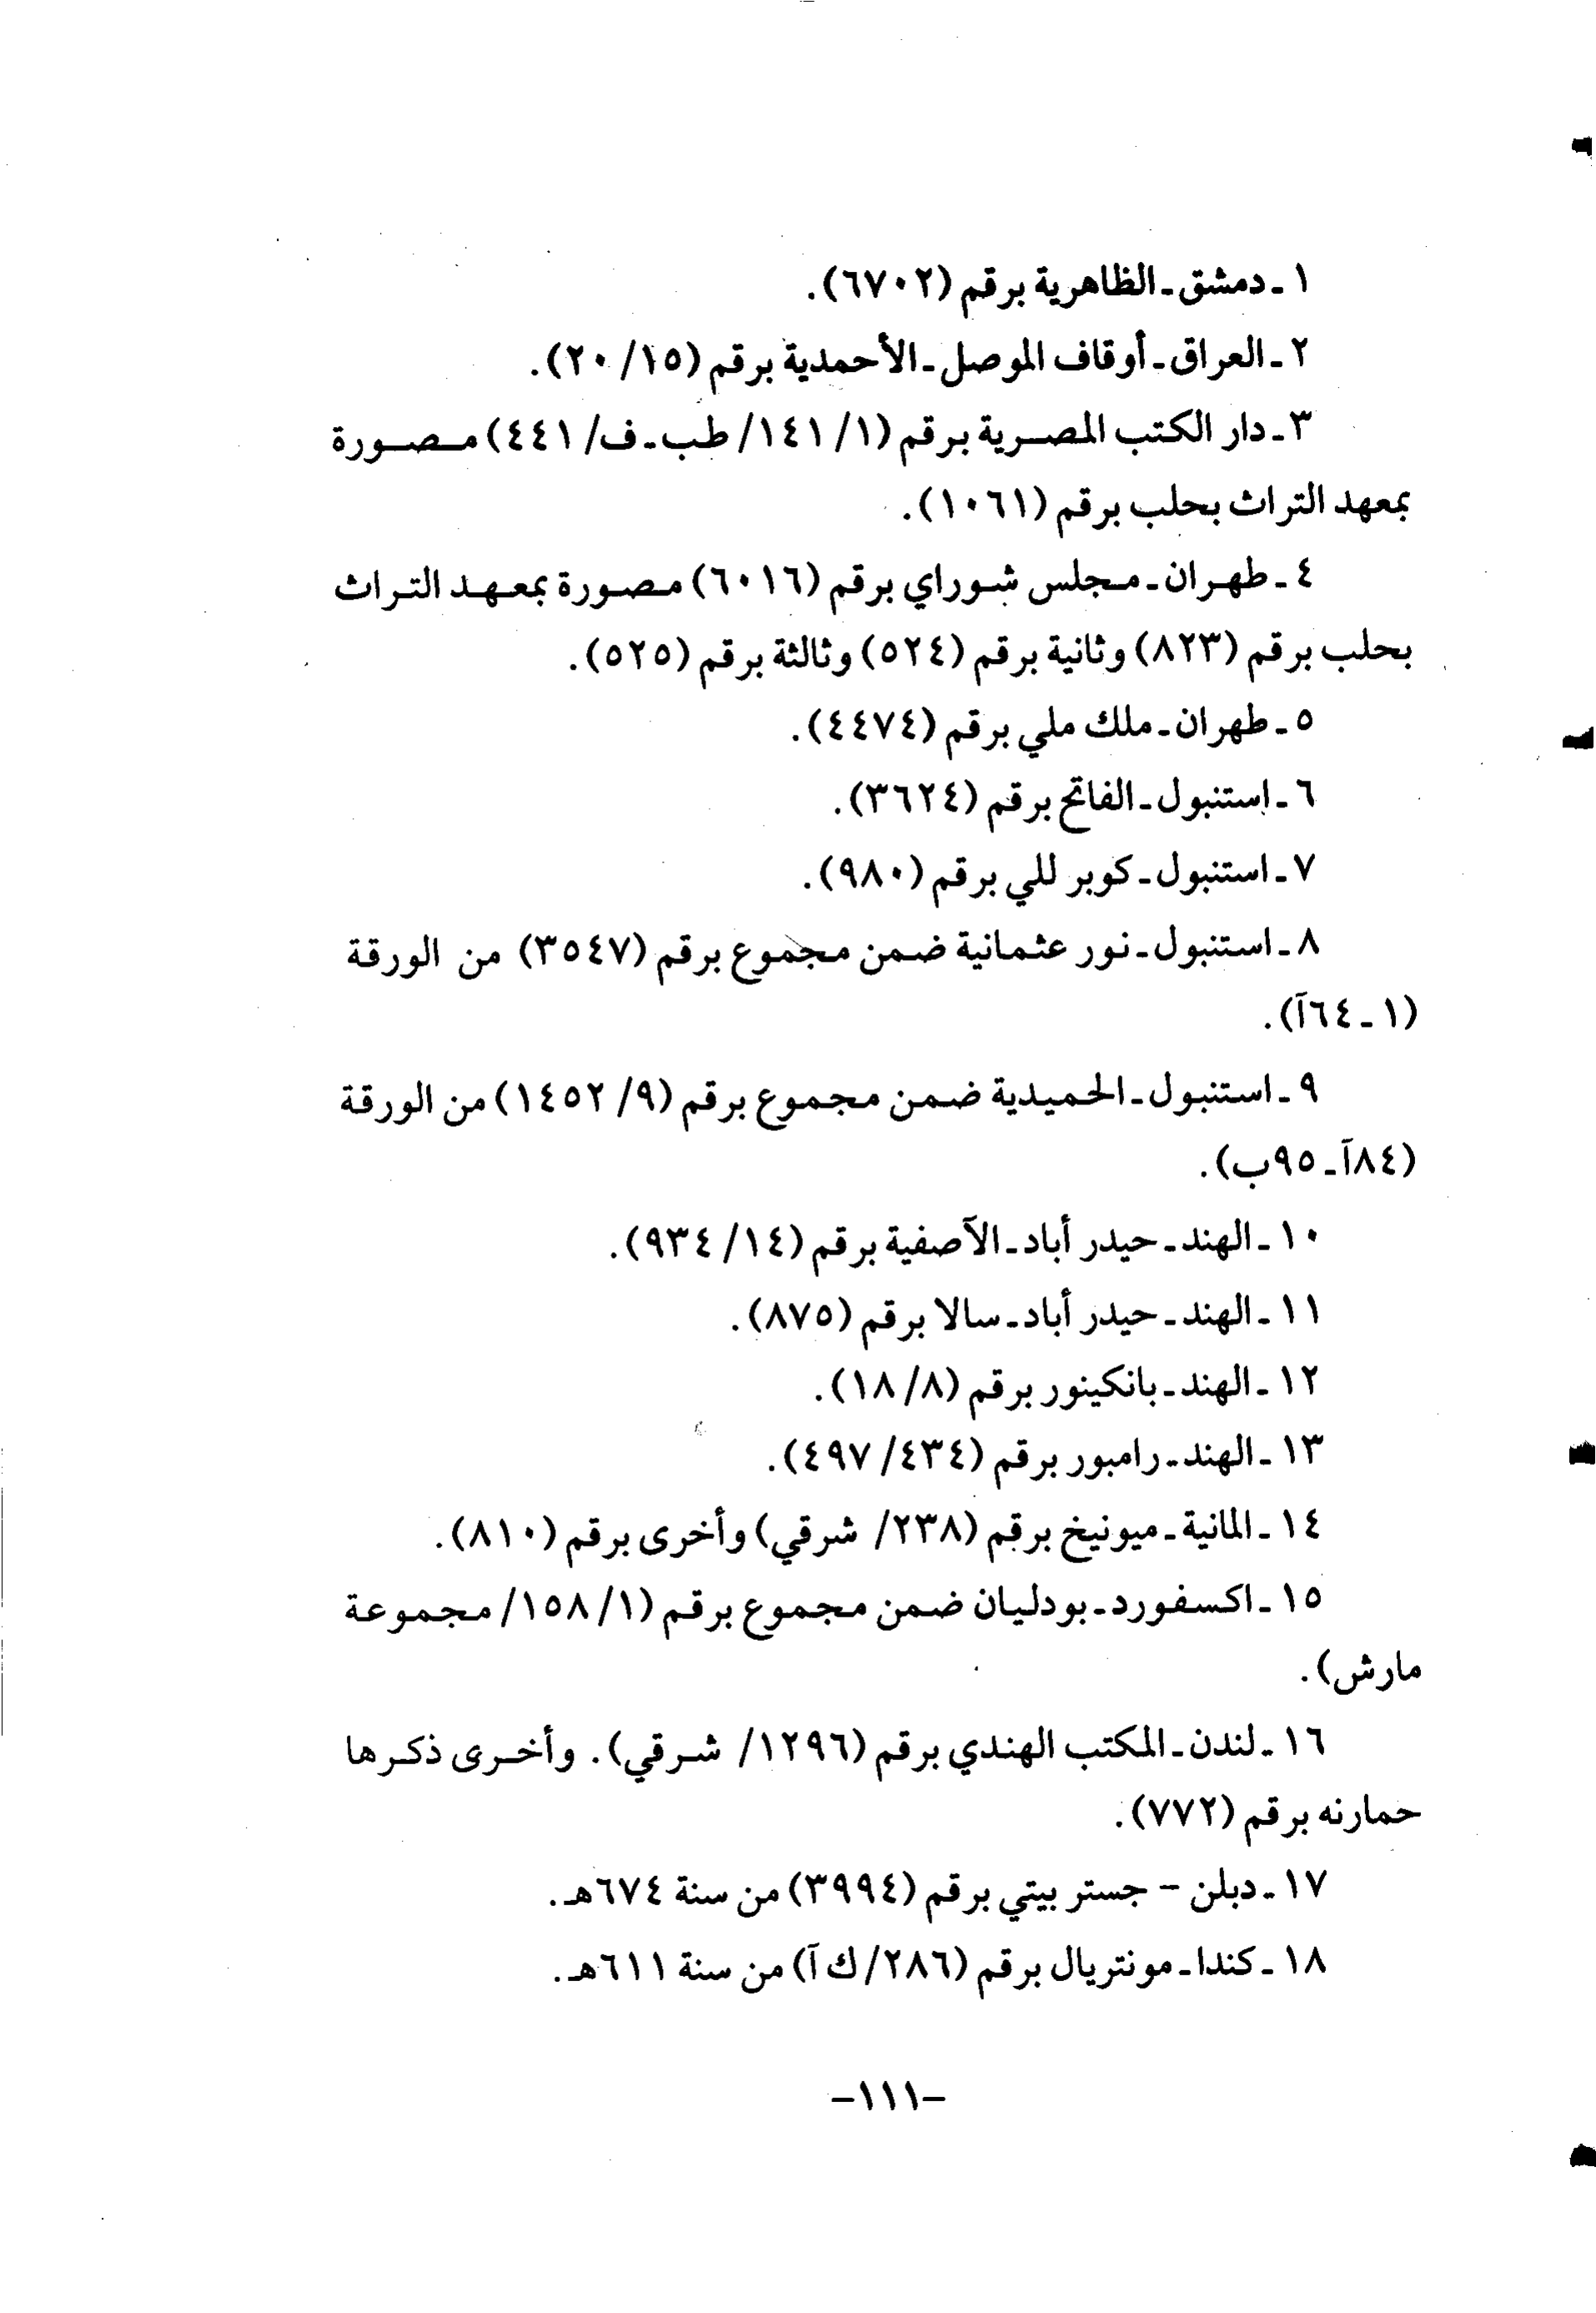 ١ - دمشق - الظاهرية برقم (٦٧٠٢).
٢ - العراق - أوقاف الموصل - الأحمدية برقم (١٥/ ٢٠).
٣ - دار الكتب المصرية برقم (١/ ١٤١/ طب - ف/ ٤٤١) مصورة
بمعهد التراث بحلب برقم (١٠٦١).
٤ - طهران - مجلس شوراي برقم (٦٠١٦) مصورة بمعهد التراث
بحلب برقم (٨٢٣) وثانية برقم (٥٢٤) وثالثة برقم (٥٢٥).
٥ - طهران - ملك ملي برقم (٤٤٧٤).
٦ - استنبول - الفاتح برقم (٣٦٢٤).
٧ - استنبول - كوبر للي برقم (٩٨٠).
٨ - استنبول - نور عثمانية ضمن مجموع برقم (٣٥٤٧) من الورقة
(١ - ٦٤آ).
٩ - استنبول - الحميدية ضمن مجموع برقم (٩/ ١٤٥٢) من الورقة
(٨٤آ - ٩٥ب).
١٠ - الهند - حيدر أباد - الآصفية برقم (١٤/ ٩٣٤).
١١ - الهند - حيدر أباد - سالا برقم (٨٧٥).
١٢ - الهند - بانكينور برقم (٨/ ١٨).
١٣ - الهند - رامبور برقم (٤٣٤/ ٤٩٧).
١٤ - المانية - ميونيخ برقم (٢٣٨/ شرقي) وأخرى برقم (٨١٠).
١٥ - اكسفورد - بودليان ضمن مجموع برقم (١/ ١٥٨/ مجموعة
مارش).
١٦ - لندن - المكتب الهندي برقم (١٢٩٦/ شرقي). وأخرى ذكرها
حمارنه برقم (٧٧٢).
١٧ - دبلن - جستر بيتي برقم (٣٩٩٤) من سنة ٦٧٤هـ.
١٨ - كندا - مونتريال برقم (٢٨٦/ ك آ) من سنة ٦١١هـ.
-١١١-